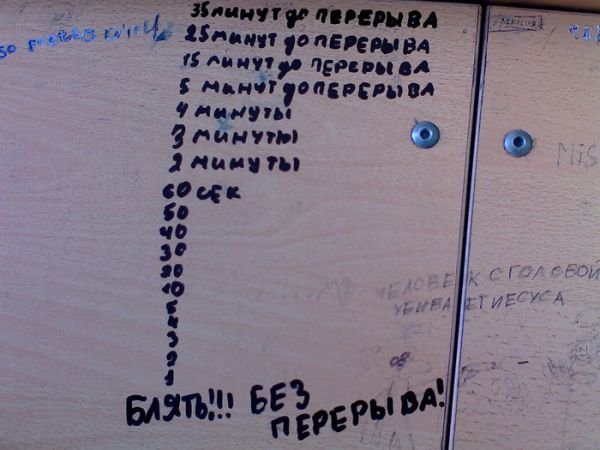 35 минут до ПЕРЕРЫВА
25 минут до ПЕРЕРЫВА
15 минут до ПЕРЕРЫВА
5 минут до ПЕРЕРЫВА
4 минуты
3 минуты
2 минуты
60 сек
50
40
30
20
10
5
4
3
2
1
БЛЯТЬ!!! БЕЗ
ПЕРЕРЫВА!
MIS
ЧЕЛОВЕК С ГОЛОВОЙ
УБИВАЕТ ИЕСУСА